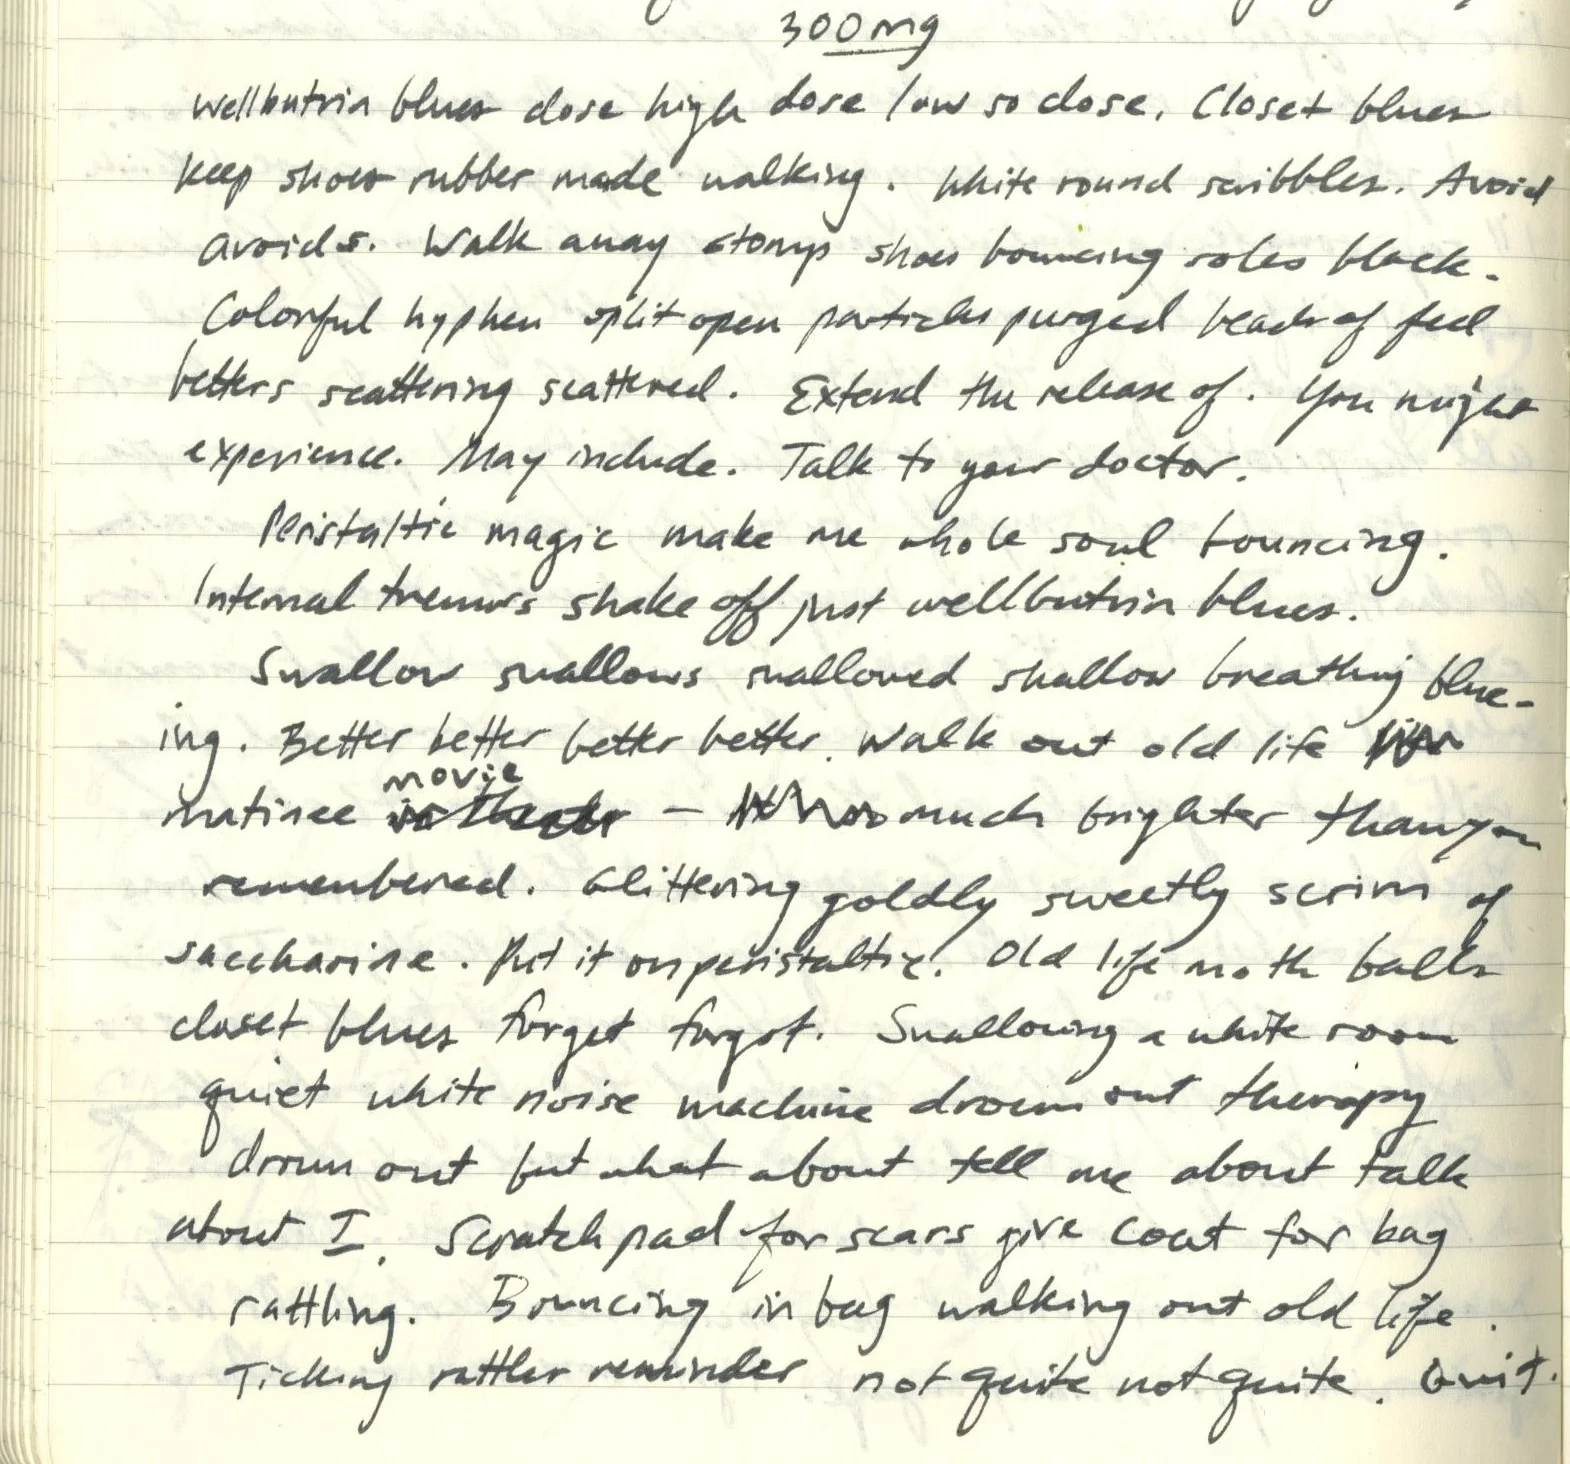 300mg
Wellbutrin blues dose high dose low so close. Closet blues
keep shoes rubber made walking. White round scribbles. Avoid
avoids. Walk away stomp shoes bouncing soles black.
Colorful hyphen split open particles purged beads of feel
betters scattering scattered. Extend the release of. You might
experience. May include. Talk to your doctor.
Peristaltic magic make me whole soul bouncing.
Internal tremors shake off just wellbutrin blues.
Swallow swallows swallowed shallow breathing blue-
ing. Better better better better. Walk out old life
matinee movie — much brighter than you
remembered. Glittering goldly sweetly scrim of
saccharine. Put it on peristaltic! Old life moth balls
closet blues forget forgot. Swallowing a white room
quiet white noise machine drown out therapy
drown out but what about tell me about talk
about I. Scratch pad for scars give coat for bag
rattling. Bouncing in bag walking out old life.
Ticking rattler reminder not quite not quite. Quit.